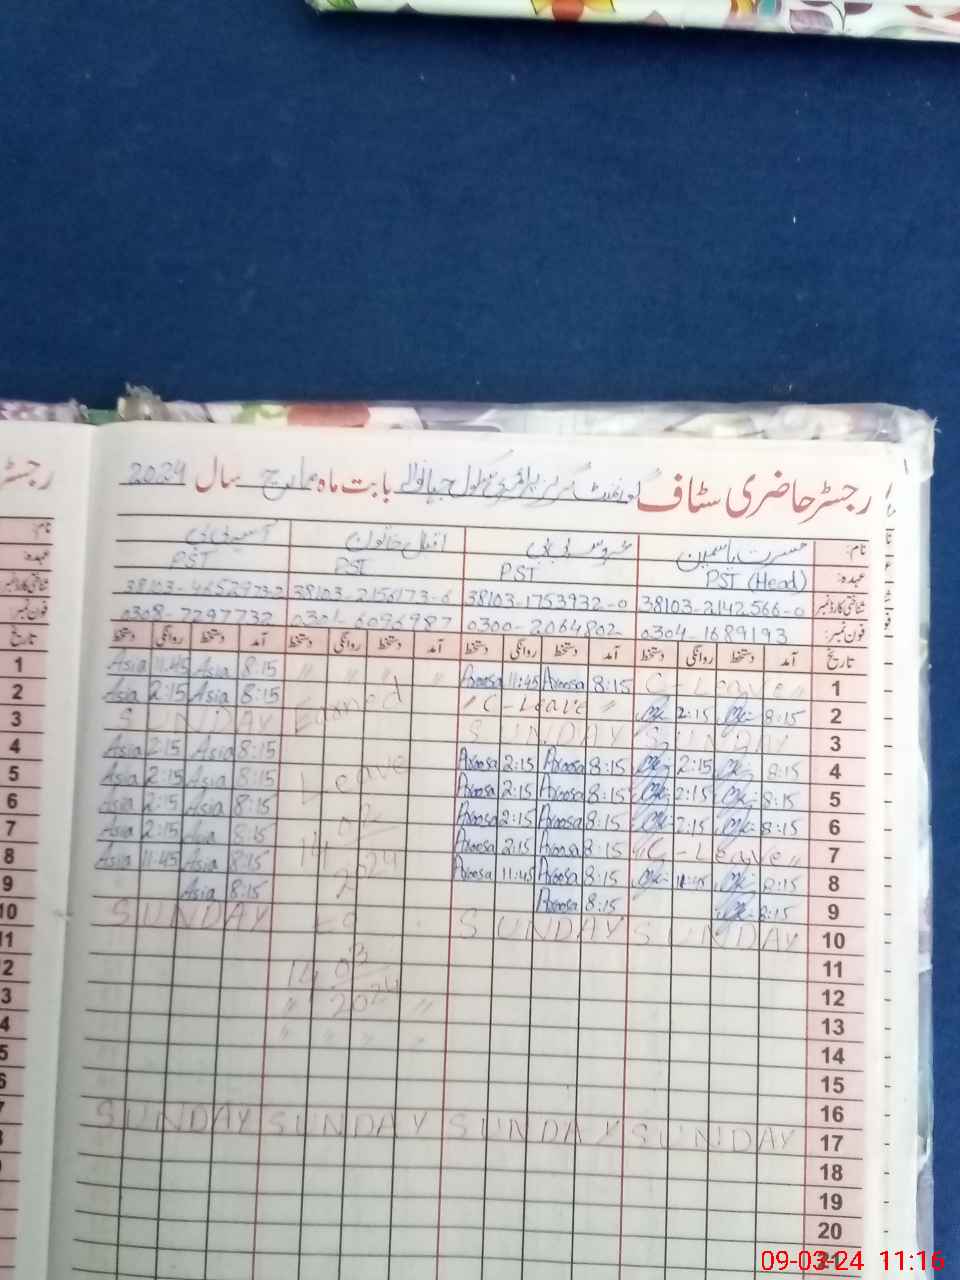 رجسٹر حاضری سٹاف گورنمنٹ گرلز پرائمری سکول بابت ماہ مارچ سال 2024
نام: مسرت یاسمین عروسہ بی بی اقبال خاتون آسیہ بی بی
عہدہ: PST (Head) PST PST PST
شناختی کارڈ نمبر: 38103-2142566-0 38103-1753932-0 38103-2156173-6 38103-4652973
فون نمبر: 0304-1689193 0300-2064802 6096987 0308-7297732
تاریخ آمد دستخط روانگی دستخط آمد دستخط روانگی دستخط آمد دستخط روانگی دستخط آمد دستخط روانگی دستخط
Asia 11:45 Asia 8:15 " " " " Aroosa 11:45 Aroosa 8:15 C-Leave " 1
Asia 2:15 Asia 8:15 Earned " C-Leave " 2:15 8:15 2
SUNDAY SUNDAY SUNDAY 3
Asia 2:15 Asia 8:15 Leave Aroosa 2:15 Aroosa 8:15 2:15 8:15 4
Asia 2:15 Asia 8:15 Aroosa 2:15 Aroosa 8:15 2:15 8:15 5
Asia 2:15 Asia 8:15 Aroosa 2:15 Aroosa 8:15 2:15 8:15 6
Asia 2:15 Asia 8:15 14 02 2024 Aroosa 2:15 Aroosa 8:15 " C-Leave " 7
Asia 11:45 Asia 8:15 Aroosa 11:45 Aroosa 8:15 11:45 8:15 8
Asia 8:15 Aroosa 8:15 8:15 9
SUNDAY SUNDAY SUNDAY 10
11
14 03 2024 12
" " 13
14
15
16
SUNDAY SUNDAY SUNDAY SUNDAY 17
18
19
20
21
رجسٹر
1
2
3
4
5
6
7
8
9
10
11
09-03-24 11:16